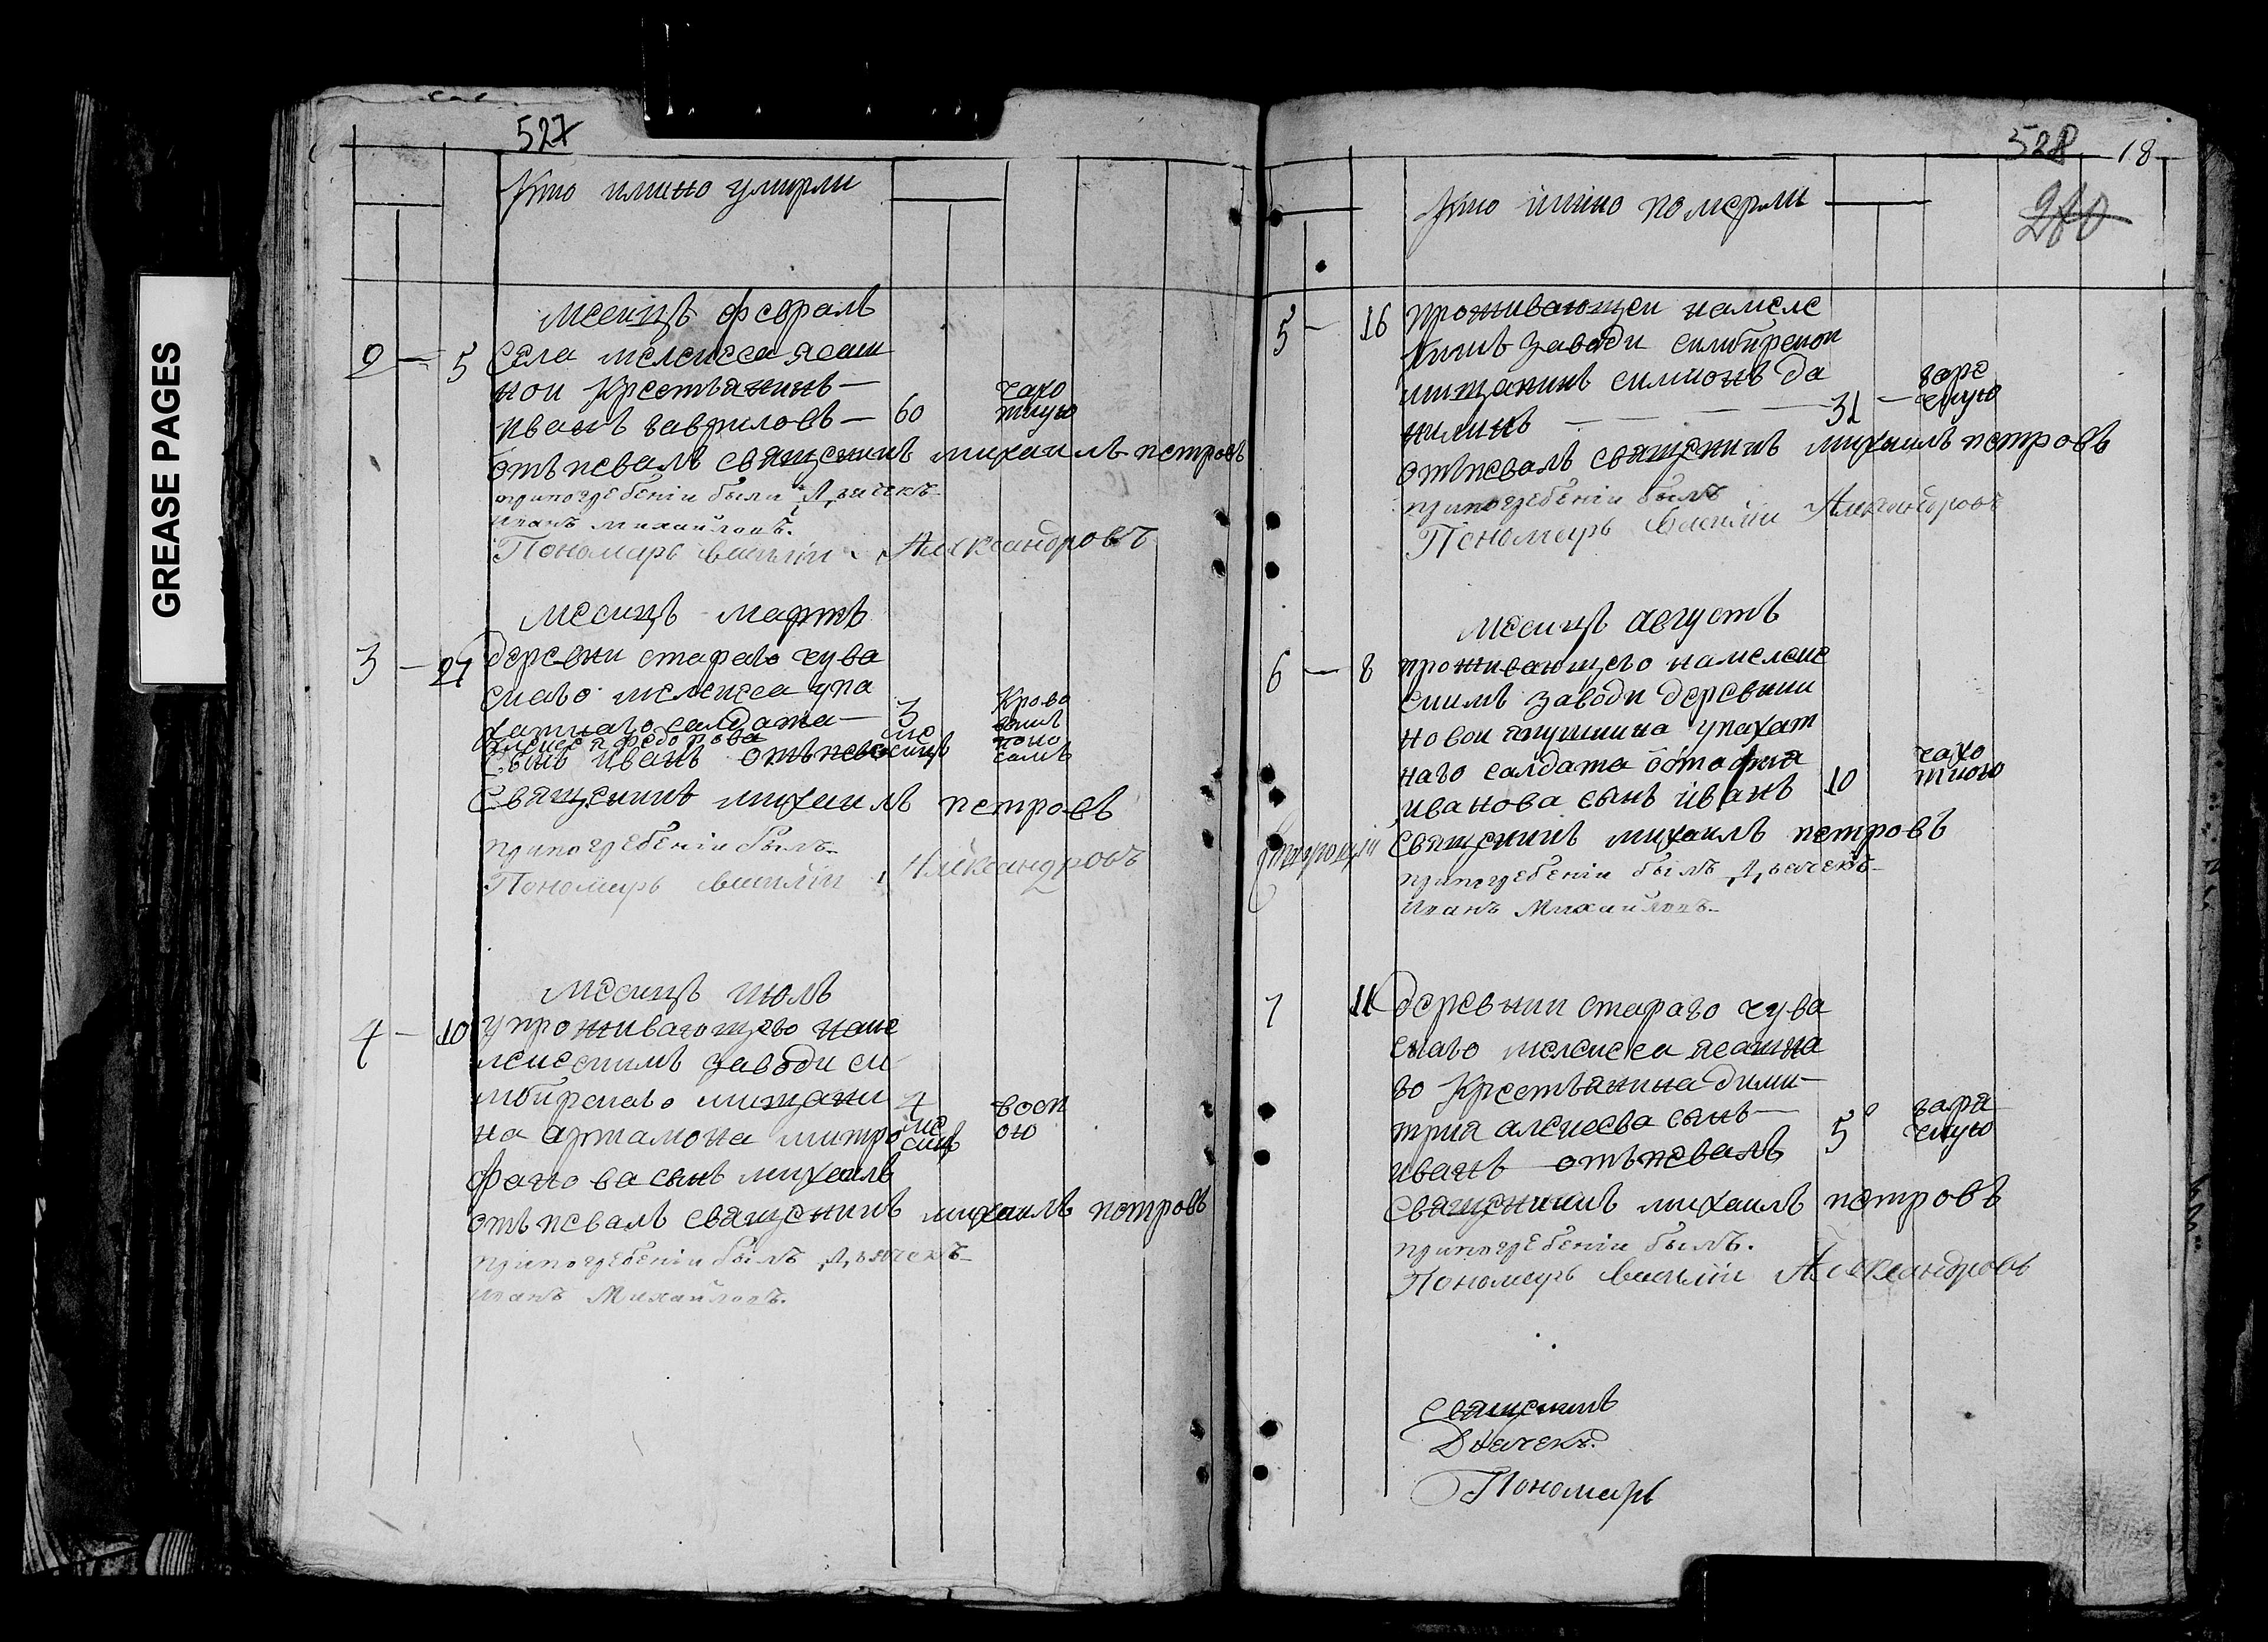 GREASE PAGES
527
Кто имено умирли
месицъ февраль
2 — 5 Села мелекеса ясаш
ной крестьянинъ —
иванъ гавриловъ — 60 чахо
ткую
отъпевалъ священикъ михаилъ петровъ
припогребеніи были Дьячекъ
Иванъ Михайловъ.
Пономарь василіи Александровъ
месицъ мартъ
3 — 27 деревни стараго чува
скаго мелекеса упа
хатнаго салдата — 3 Крова
алексея федорова ме
сынъ иванъ отъпевалъ сицъ
священикъ михаилъ петровъ
припогребеніи былъ
Пономарь василіи Александровъ
месицъ июль
4 — 10 у проживающего наме
лекескимъ заводи си
мбирскаго мищани 4 восп
на артамона митро ме сицъ ою
фанова сынъ михаилъ
отъпевалъ священикъ михаилъ петровъ
припогребеніи былъ Дьячекъ
Иванъ Михайловъ.
528 18
280
Кто имино померли
5 — 16 проживающеи намеле
кимъ заводи симбирскои
мищанинъ симионъ да горе
нилинъ — 31 — чкую
отъпевалъ священикъ михаилъ петровъ
припогребеніи былъ
Пономарь василіи Александровъ
месицъ августъ
6 — 8 проживающего намелеке
скимъ заводи деревнии
новои упахат
наго салдата остафия чахо
иванова сынъ иванъ 10 ткою
священикъ михаилъ петровъ
припогребеніи былъ Дьячекъ
Иванъ Михайловъ.
7 11 деревнии стараго чува
скаго мелекеса ясашна
го Крестьянина дими
трия алексева сынъ — 5 гаря
иванъ отъпевалъ чкую
священикъ михаилъ петровъ
припогребеніи былъ.
Пономарь василіи Александровъ
священикъ
Дьячекъ
Пономарь